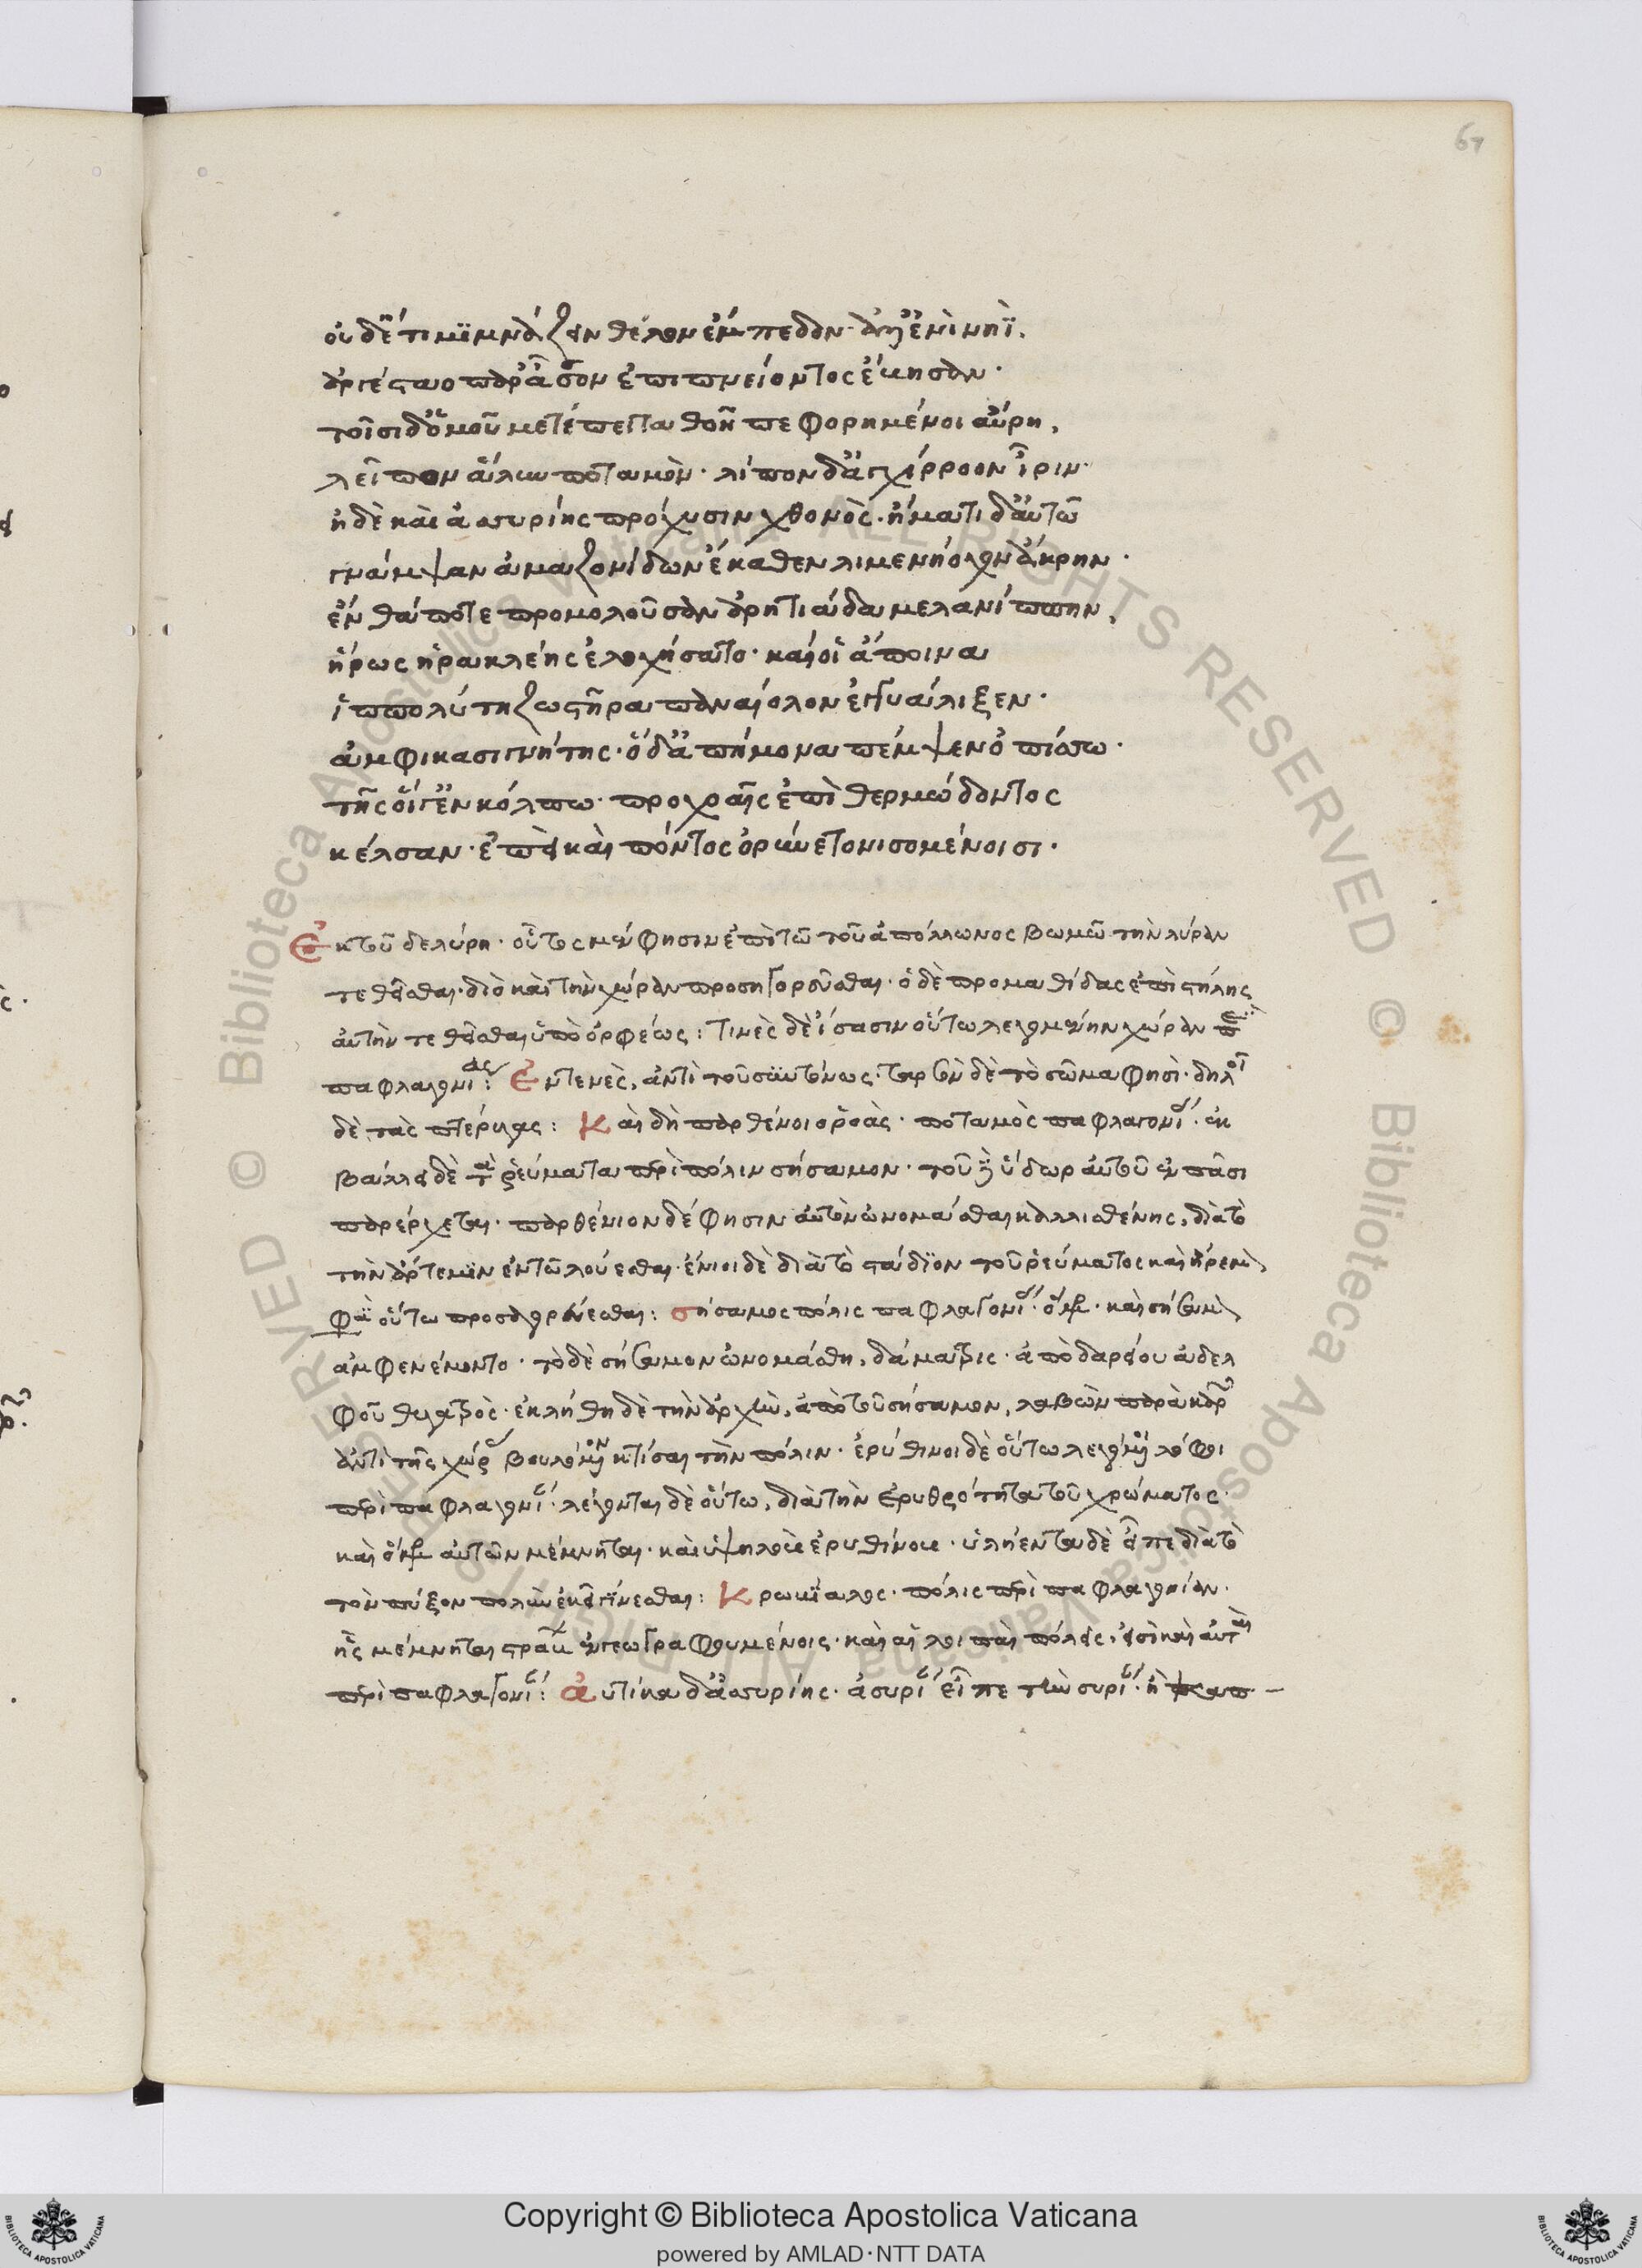 67
οὐδ' ἔτι μίμνάζειν θέλον ἔμπεδον· ἀλλ' ἐνὶ νηῒ,
ἀργέσταο παρᾶσσον ἐπιπνείοντος ἔβησαν·
τοῖσι δ' ὁμοῦ μετέπειτα θοῇ πεφορημένοι αὔρη,
λεῖπον ἅλυν ποταμὸν· λίπον δ' ἀγχίρροον ἶριν·
ἠδὲ καὶ ἀσσυρίης πρόχυσιν χθονὸς· ἤματι δ' αὐτῶ
γνάμψαν ἀμαζονίδων ἕκαθεν λιμενήοχον ἄκρην·
ἔνθά ποτε προμολοῦσαν ἀρητιάδα μελανίππην,
ἥρως ἡρακλέης ἐλοχήσατο· καί οἱ ἄποινα
ἱππολύτη ζωστῆρα παναίολον ἐγγυάλιξεν·
ἀμφὶ κασιγνήτης· ὁ δ' ἀπήμονα πέμψεν ὀπίσσω·
τῆς οἵγ' ἐν κόλπω· προχοαῖς ἐπὶ θερμώδοντος
κέλσαν· ἐπεὶ καὶ πόντος ὀρίνετο νισσομένοισι·
Ἐκ τοῦ δὲ λύρη· οὗτος μέν φησιν ἐπὶ τῶ τοῦ ἀπόλλωνος βωμῶ τὴν λύραν
τεθεῖσθαι· διὸ καὶ τὴν χώραν προσηγορεῦσθαι· ὁ δὲ προμαθίδας ἐπὶ στήλης
αὐτὴν τεθεῖσθαι ὑπὸ ὀρφέως: Τινὲς δὲ ἴσασιν οὕτω λεγομένην χώραν
παφλαγονίας: Ἐντενὲς, ἀντὶ τοῦ συντόνως· ταρσὸν δὲ τὸ σῶμα φησὶ· δηλοῖ
δὲ τὰς πτέρυγας: Καὶ δὴ παρθενίοιο ῥοὰς· ποταμὸς παφλαγονίας· ἐκ
βάλλει δὲ τὰ ῥεύματα περὶ πόλιν σήσαμον· τοῦ γὰρ ὕδωρ αὐτοῦ ἐν πᾶσι
παρέρχεται· παρθένιον δέ φησιν αὐτὸν ὠνομάσθαι καλλισθένης, διὰ τὸ
τὴν ἄρτεμιν ἐν τῶ λούεσθαι· ἔνιοι δὲ διὰ τὸ στάδιον τοῦ ῥεύματος καὶ ἠρέμ
φασὶ οὕτω προσαγορεύεσθαι: σήσαμος πόλις παφλαγονίας· ὅμηρος· καὶ σήσαμ
ἀμφενέμοντο· τὸ δὲ σήσαμον ὠνομάσθη,
φοῦ θυγατρὸς· ἐκλήθη δὲ τὴν ἀρχὴν, ἀπὸ τοῦ σήσαμον, λαβὼν παρὰ
ἀντὶ τῆς χώρας βουλόμενον κτίσαι τὴν πόλιν· ἐρύθινοι δὲ οὕτω λεγόμενοι λόφοι
περὶ παφλαγονίας· λέγονται δὲ οὕτω, διὰ τὴν ἐρυθρότητα τοῦ χρώματος·
καὶ ὅμηρος αὐτῶν μέμνηται· καὶ ὑψηλοὺς ἐρυθίνους· ὑλήεντα δὲ εἶπε διὰ τὸ
τὸν πύξον πολὺν ἐκεῖ γίνεσθαι: Κρωμίαλος· πόλις περὶ παφλαγονίαν·
ἧς μέμνηται στράβων ἐν γεωγραφουμένοις· καὶ αἱ λοιπαὶ πόλεις, εἰσὶ καὶ αὐταὶ
περὶ παφλαγονίας: Αὐτίκα δ' ἀσσυρίης· ἀσυρίας εἶπε τὴν συρίας· ἢ
Copyright © Biblioteca Apostolica Vaticana
powered by AMLAD·NTT DATA